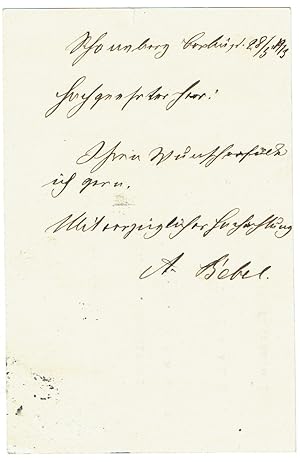 Schöneberg Berlin, d. 28/3
Hochgeehrter Herr!
Ihren Wunsch erfülle
ich gern.
Mit vorzüglicher Hochachtung
A. Bebel.